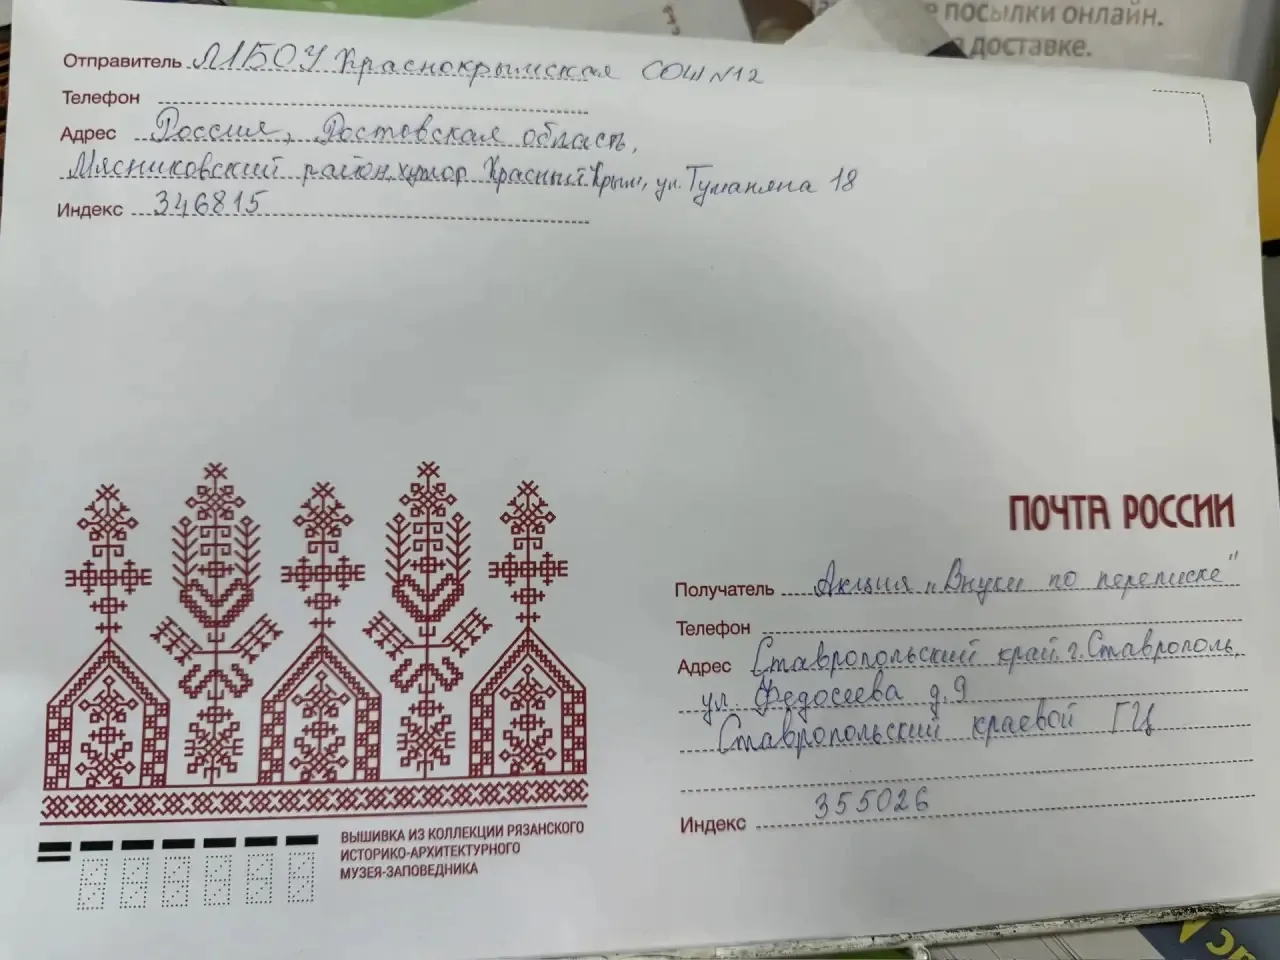 е посылки онлайн.
а доставке.
Отправитель МБОУ Краснокрымская СОШ №12
Телефон
Адрес Россия, Ростовская область,
Мясниковский район, хутор Красный Крым, ул. Туманяна 18
Индекс 346815
ПОЧТА РОССИИ
Получатель Акция „Внуки по переписке"
Телефон
Адрес Ставропольский край, г. Ставрополь,
ул. Федосеева д. 9
Ставропольский краевой ГЦ
Индекс 355026
ВЫШИВКА ИЗ КОЛЛЕКЦИИ РЯЗАНСКОГО
ИСТОРИКО-АРХИТЕКТУРНОГО
МУЗЕЯ-ЗАПОВЕДНИКА